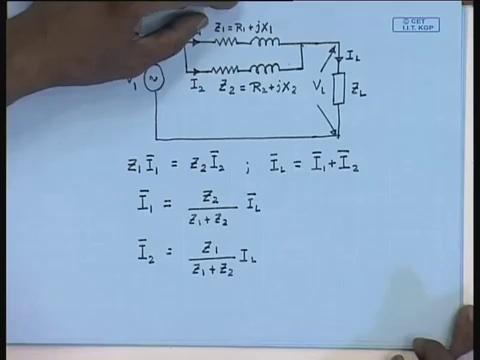 © CET
I.I.T. KGP
Z₁ = R₁ + jX₁
I_L
I₂
Z₂ = R₂ + jX₂
V_L
Z_L
V₁
Z₁ Ī₁ = Z₂ Ī₂ ; Ī_L = Ī₁ + Ī₂
Ī₁ = Z₂ / (Z₁ + Z₂) Ī_L
Ī₂ = Z₁ / (Z₁ + Z₂) I_L